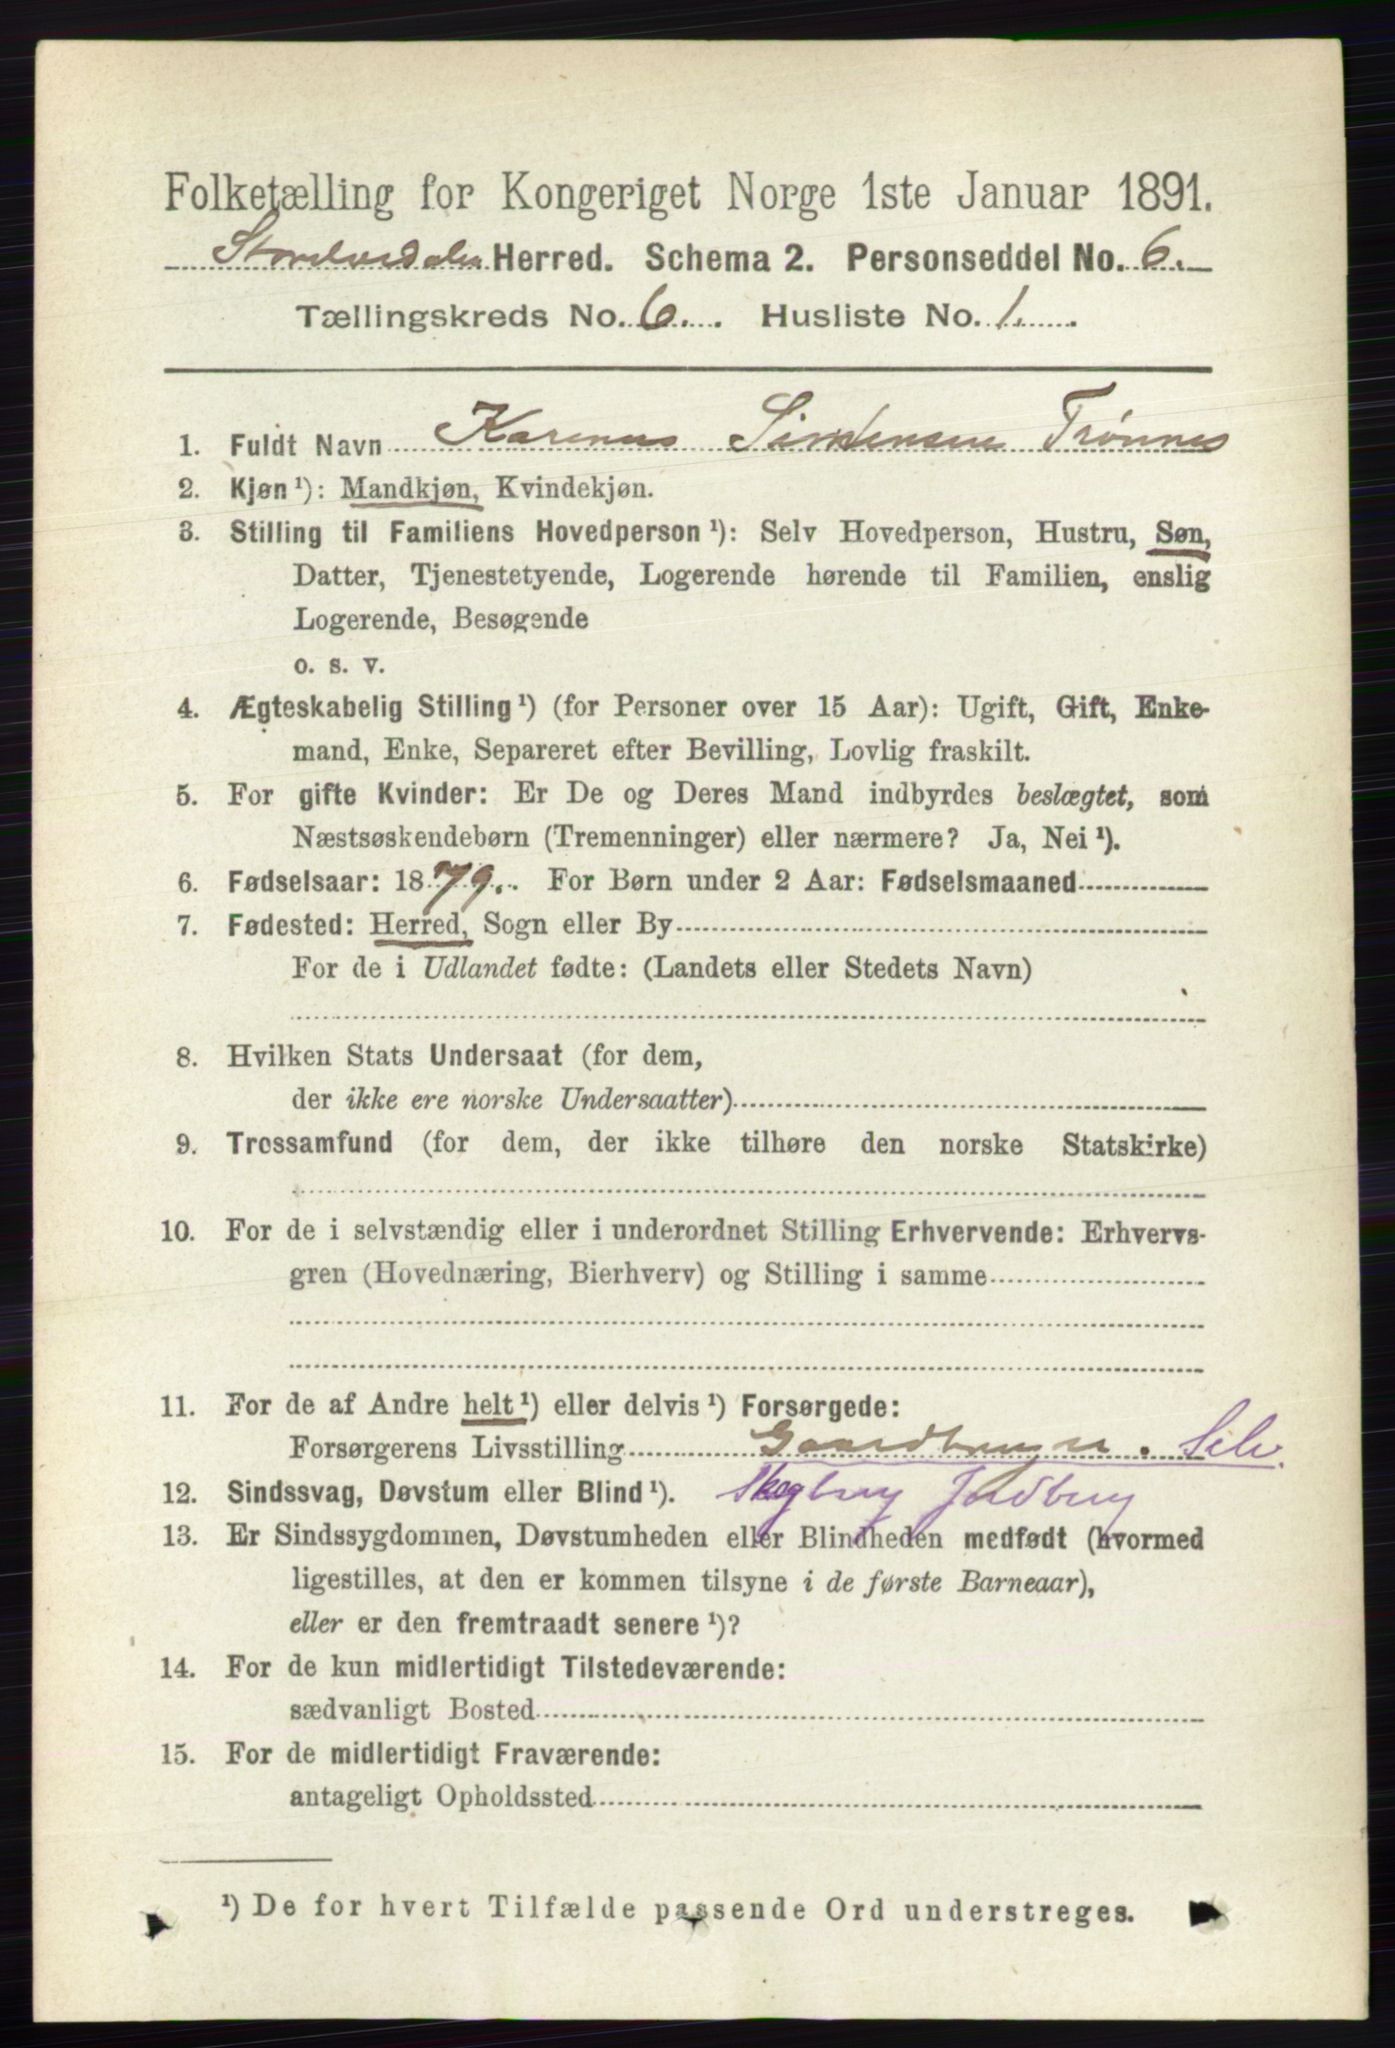 Folketælling for Kongeriget Norge 1ste Januar 1891.
Storelvedalen Herred. Schema 2. Personseddel No. 6.
Tællingskreds No. 6. Husliste No. 1.
1. Fuldt Navn Karenus Simensen Trønnes
2. Kjøn ¹): Mandkjøn, Kvindekjøn.
3. Stilling til Familiens Hovedperson ¹): Selv Hovedperson, Hustru, Søn,
Datter, Tjenestetyende, Logerende hørende til Familien, enslig
Logerende, Besøgende
o. s. v.
4. Ægteskabelig Stilling ¹) (for Personer over 15 Aar): Ugift, Gift, Enke-
mand, Enke, Separeret efter Bevilling, Lovlig fraskilt.
5. For gifte Kvinder: Er De og Deres Mand indbyrdes beslægtet, som
Næstsøskendebørn (Tremenninger) eller nærmere? Ja, Nei ¹).
6. Fødselsaar: 1879. For Børn under 2 Aar: Fødselsmaaned
7. Fødested: Herred, Sogn eller By
For de i Udlandet fødte: (Landets eller Stedets Navn)
8. Hvilken Stats Undersaat (for dem,
der ikke ere norske Undersaatter)
9. Trossamfund (for dem, der ikke tilhøre den norske Statskirke)
10. For de i selvstændig eller i underordnet Stilling Erhvervende: Erhvervs-
gren (Hovednæring, Bierhverv) og Stilling i samme
11. For de af Andre helt ¹) eller delvis ¹) Forsørgede:
Forsørgerens Livsstilling Gaardbruger. Selv.
12. Sindssvag, Døvstum eller Blind ¹). Skogbrug Jordbrug
13. Er Sindssygdommen, Døvstumheden eller Blindheden medfødt (hvormed
ligestilles, at den er kommen tilsyne i de første Barneaar),
eller er den fremtraadt senere ¹)?
14. For de kun midlertidigt Tilstedeværende:
sædvanligt Bosted
15. For de midlertidigt Fraværende:
antageligt Opholdssted
¹) De for hvert Tilfælde passende Ord understreges.